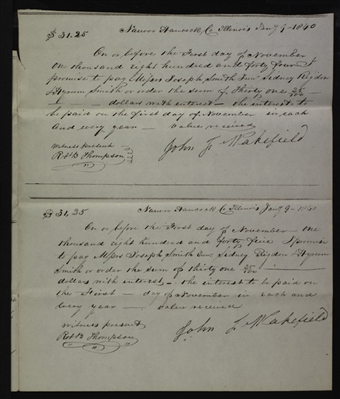 $31.25 Nauvoo Hancock Co Illinois Jany 9 1840
On or before the first day of November
one thousand eight hundred and forty four I
promise to pay Messrs Joseph Smith Junr Sidney Rigdon
Hyrum Smith or order the sum of Thirty one 25/100
dollars with interest - the interest to
be paid on the first day of November in each
and every year - value received
witness present
Robt B Thompson
John L Wakefield
$31,25 Nauvoo Hancock Co Illinois Jany 9 1840
On or before the First day of November - one
thousand eight hundred and forty five I promise
to pay Messrs Joseph Smith Junr Sidney Rigdon Hyrum
Smith or order the sum of thirty one 25/100
dollars with interest - the interest to be paid on
the First - day of November in each and
every year - value received
witness present
Robt B Thompson
John L Wakefield